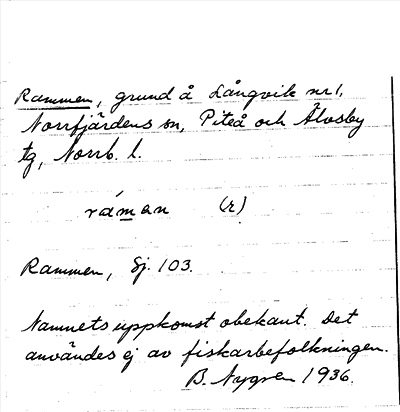 Rammen, grund å Långvik nr 1,
Norrfjärdens sn, Piteå och Älvsby
tg, Norrb. l.
ráman (r)
Rammen, Sj. 103.
Namnets uppkomst obekant. Det
användes ej av fiskarbefolkningen.
B. Nygren 1936.